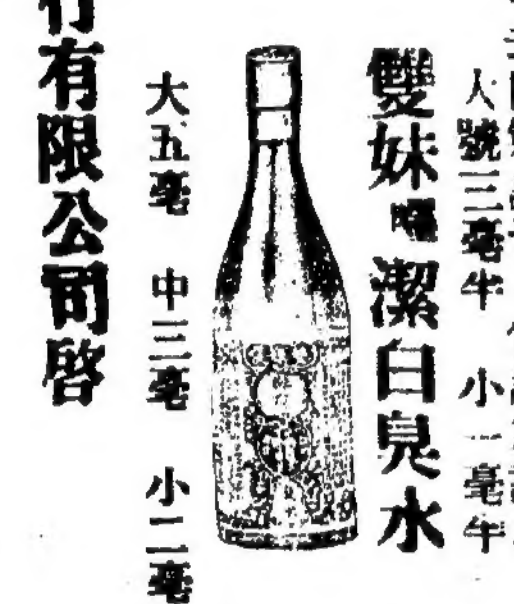 大號三毫半 小一毫半
雙妹嚜潔白臭水
大五毫 中三毫 小二毫
行有限公司啓